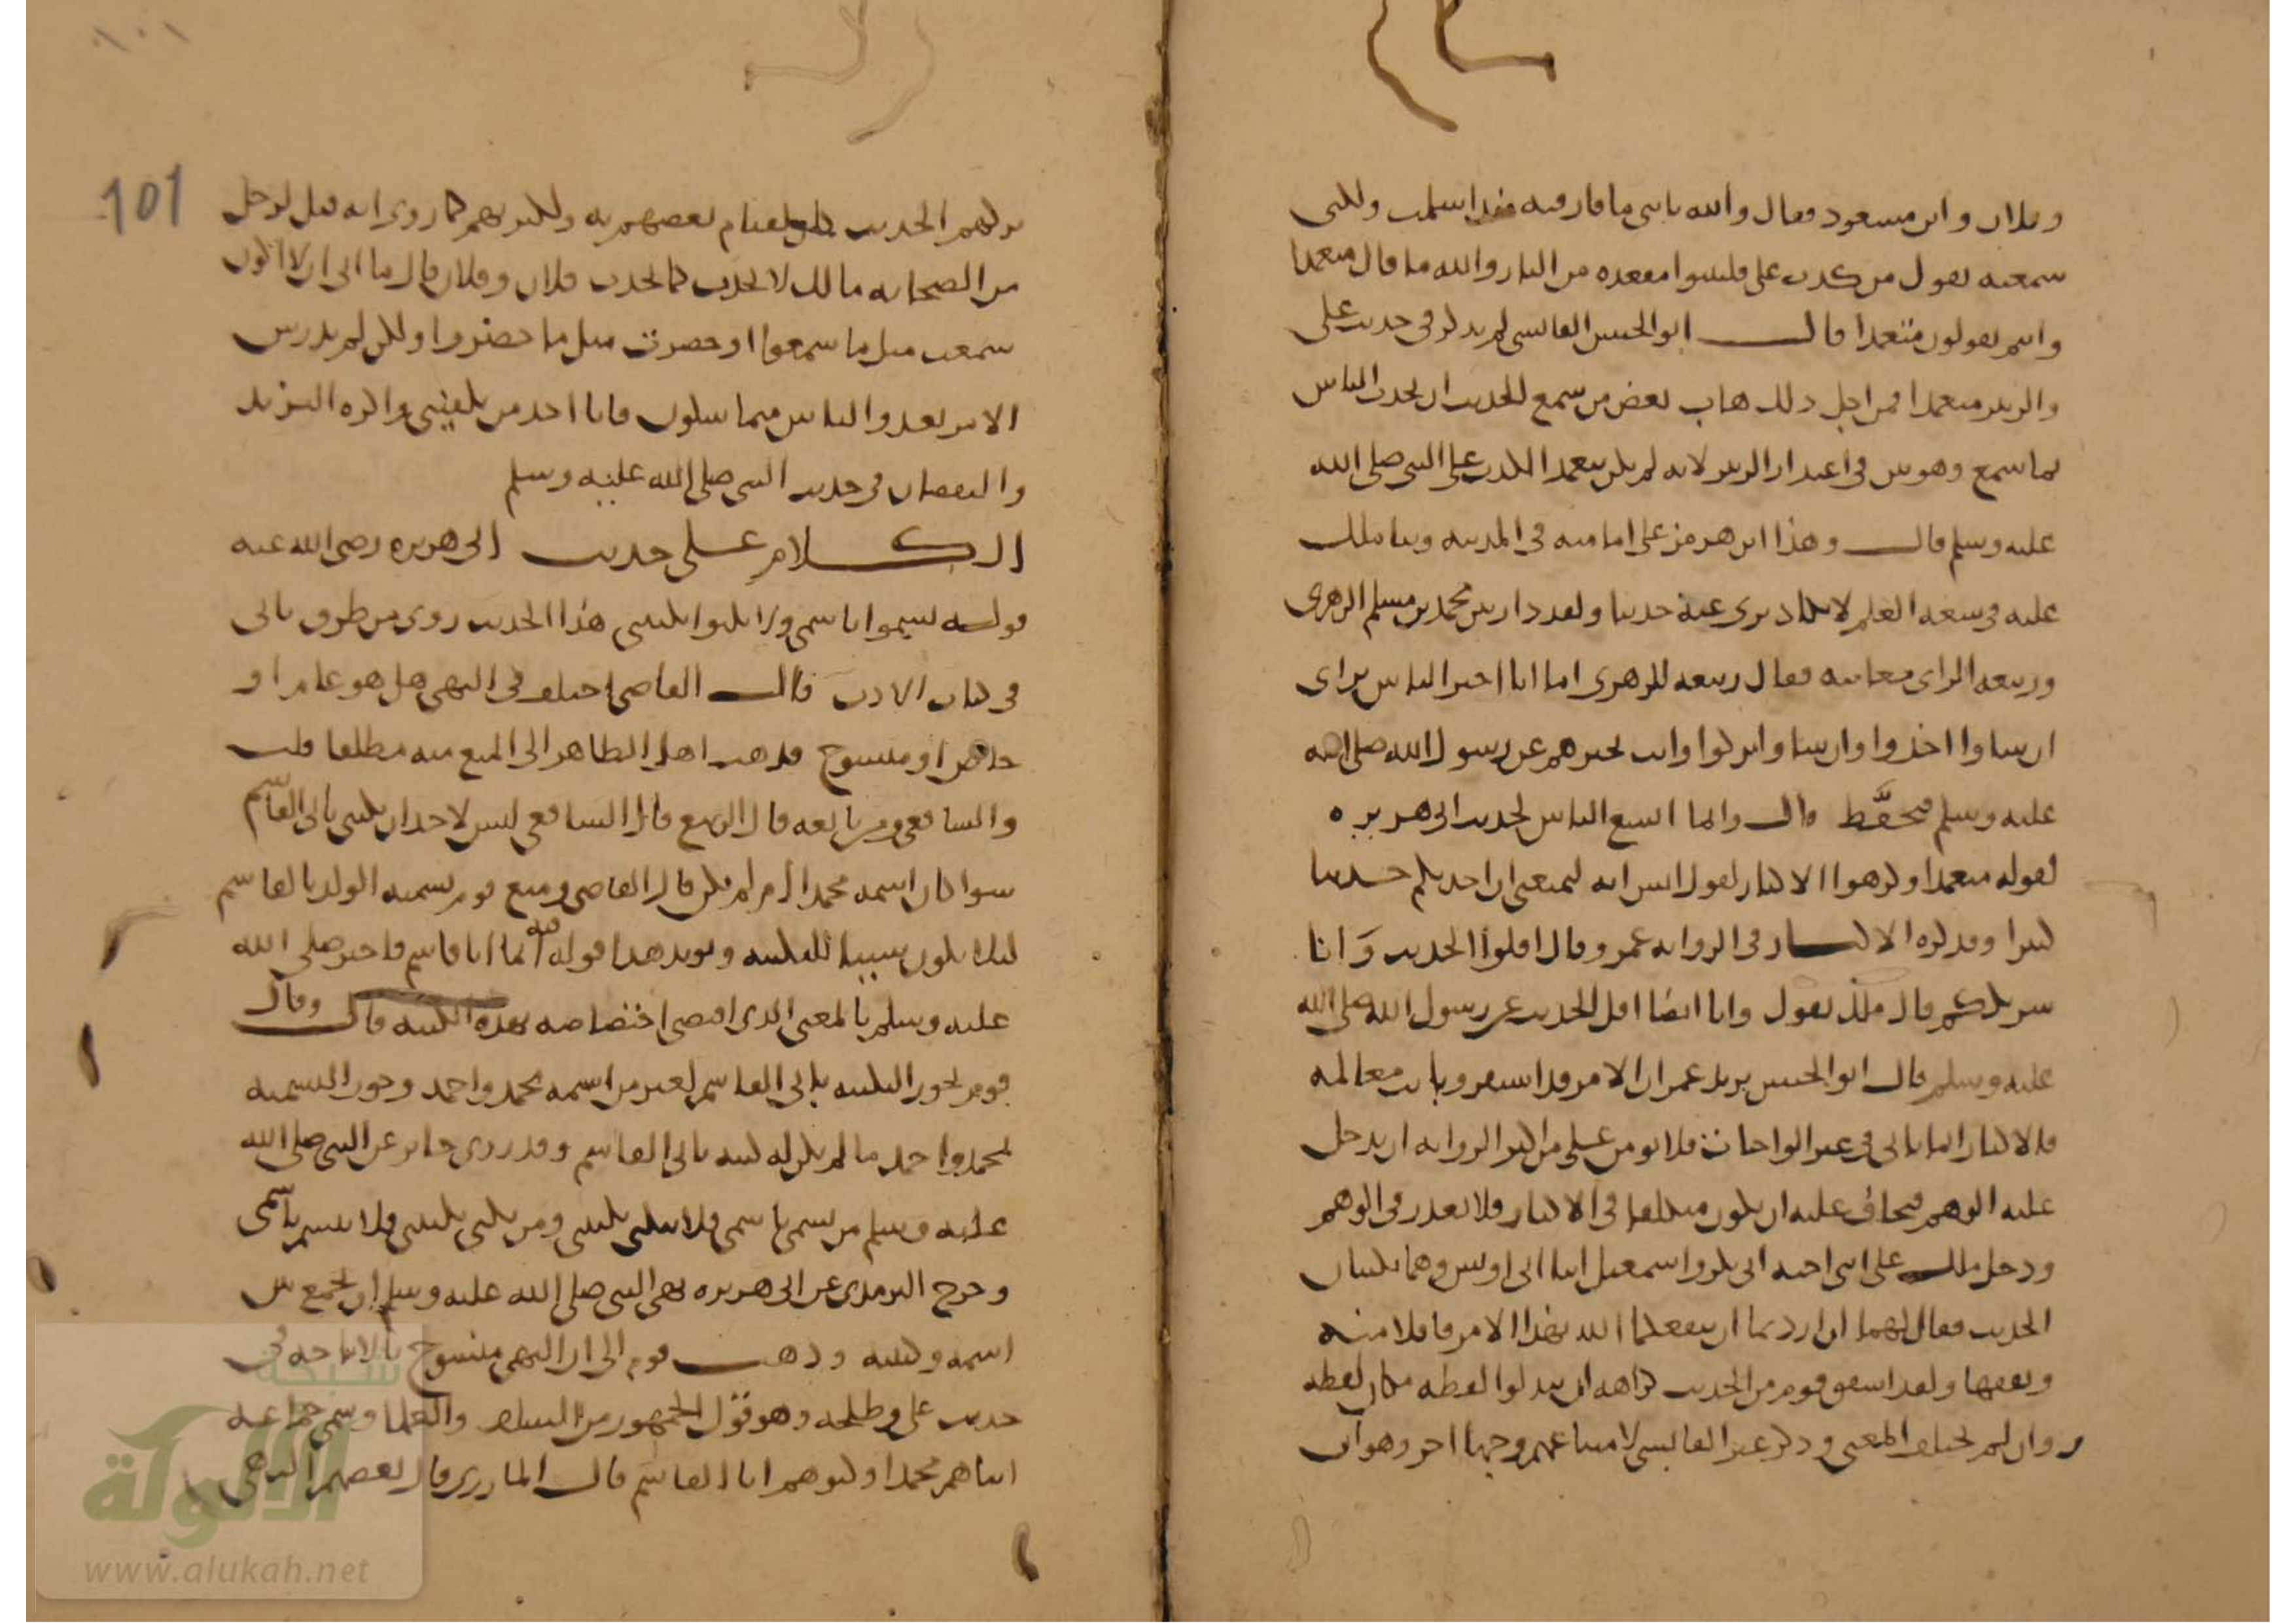 وفلان وابن مسعود فقال والله يا بني ما فارقته منذ اسلمت ولكني
سمعته يقول من كذب علي فليتبوا مقعده من النار والله ما قال متعمدا
وانتم تقولون متعمدا قال ابو الحسن القابسي لم يذكر في حديث علي
والزبير متعمدا فمن اجل ذلك هاب بعض من سمع الحديث ان يحدث الناس
بما سمع وهو بين في اعتذار الزبير لانه لم يكن يتعمد الكذب على النبي صلى الله
عليه وسلم قال وهذا ابن هرمز على امامته في المدينة وثنا ملك
عليه في سعة العلم لا يكاد يروى عنه حديثا ولقد دار بين محمد بن مسلم الزهري
وربيعة الراى معاتبة فقال ربيعة للزهري اما انا اخبر الناس براى
ان شاوا اخذوا وان شاوا تركوا وانت تخبرهم عن رسول الله صلى الله
عليه وسلم فتحفّظ قال وانما اتسع الناس لحديث ابي هريره
لقوله متعمدا وكرهوا الاكثار لقول انس انه ليمنعني ان احدثكم حديثا
كثيرا وقد كره الاكثار في الروايه عمر وقال اقلوا الحديث وَانا
شريككم قال ملك يقول وانا ايضا اقل الحديث عن رسول الله صلى الله
عليه وسلم قال ابو الحسن يريد عمر ان الامر قد استقر وبانت معالمه
فالاكثار انما ياتي في غير الواجبات فلا يومن على من اكثر الروايه ان يدخل
عليه الوهم فيخاف عليه ان يكون متكلفا في الاكثار فلا يعذر في الوهم
ودخل ملك على ابني اخته ابي بكر واسمعيل ابنا ابي اويس وهما يكتبان
الحديث فقال لهما ان اردتما ان ينفعكما الله بهذا الامر فاقلا منه
وتفقها ولقد اشفق قوم من الحديث كراهه ان يبدلوا لفظه مكان لفظه
وان لم يختلف المعنى وذكر غير القابسي لامتناعهم وجها اخر وهو ان
101
تركهم الحديث لقيام بعضهم به ولكبرهم كما روي انه قيل لرجل
من الصحابه ما لك لا تحدث كما يحدث فلان وفلان قال ما الى ان لا اكون
سمعت مثل ما سمعوا او حضرت مثل ما حضروا ولكن لم يدرس
الامر بعد والناس متماسكون فانا اجد من يكفيني واكره التزيد
والنقصان في حديث النبي صلى الله عليه وسلم
الكلام على حديث ابي هريره رضي الله عنه
قوله تسموا باسمي ولا تكنوا بكنيتي هذا الحديث روي من طرق ياتي
في كتاب الادب قال القاضي اختلف في النهي هل هو عام او
خاص او منسوخ فذهب اهل الظاهر الى المنع منه مطلقا قلت
والشافعي ومن تابعه قال الربيع قال الشافعي ليس لاحد ان يكتني بابي القاسم
سوا كان اسمه محمدا ام لم يكن قال القاضي ومنع قوم تسميه الولد بالقاسم
ليلا يكون سببا للكنيه ويويد هذا قوله فيه انما انا قاسم فاخبر صلى الله
عليه وسلم بالمعنى الذي اقتضى اختصاصه بهذه الكنيه قال وقال
قوم تجوز التكنيه بابي القاسم لغير من اسمه محمد واحمد ويجوز التسميه
بمحمد واحمد ما لم يكن له كنيه بابي القاسم وقد روى جابر عن النبي صلى الله
عليه وسلم من تسمى باسمي فلا يكتني بكنيتي ومن تكنى بكنيتي فلا يتسم باسمي
وخرج الترمذي عن ابي هريره نهى النبي صلى الله عليه وسلم ان يجمع بين
اسمه وكنيته وذهب قوم الى ان النهي منسوخ بالاباحه في
حديث علي وطلحه وهو قول الجمهور من السلف والعلما وسمى جماعه
ابناهم محمدا وكنوهم ابا القاسم قال المازري قال بعضهم النهي
شبكة
الألوكة
www.alukah.net